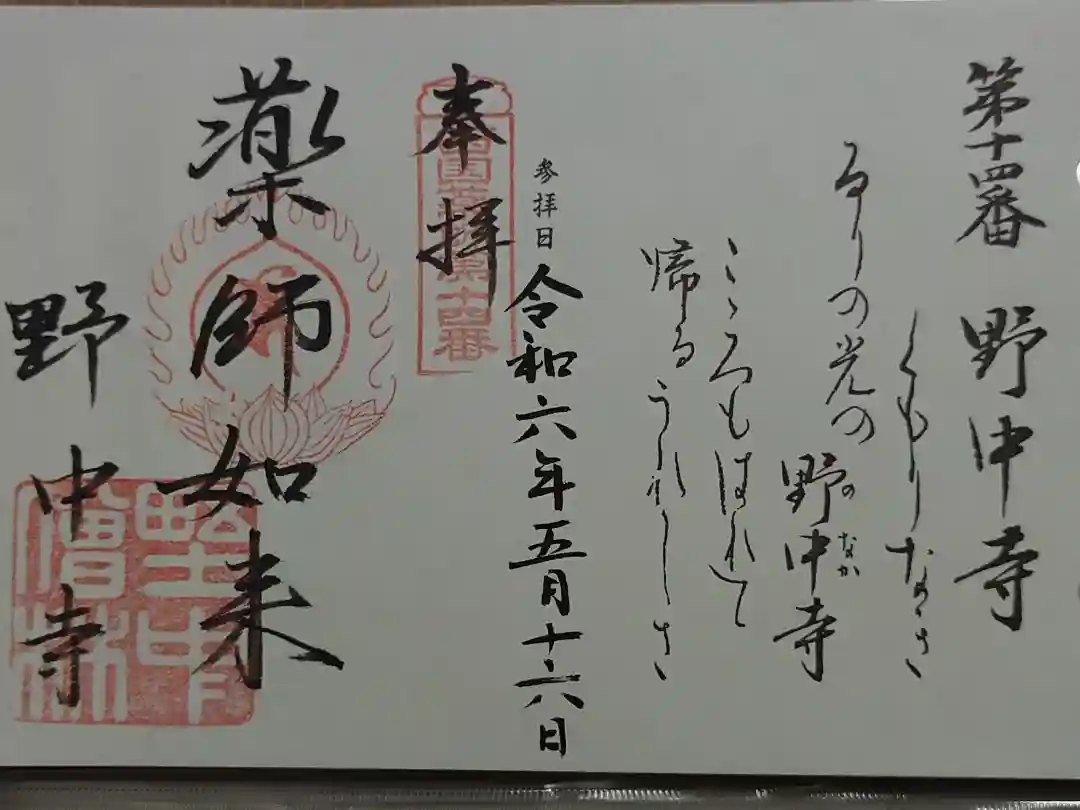 第十四番 野中寺
くもりなき
るりの光の
野中寺
のなか
こゝろもはれて
帰るうれしさ
参拝日
令和六年五月十六日
奉拝
薬師如来
野中寺